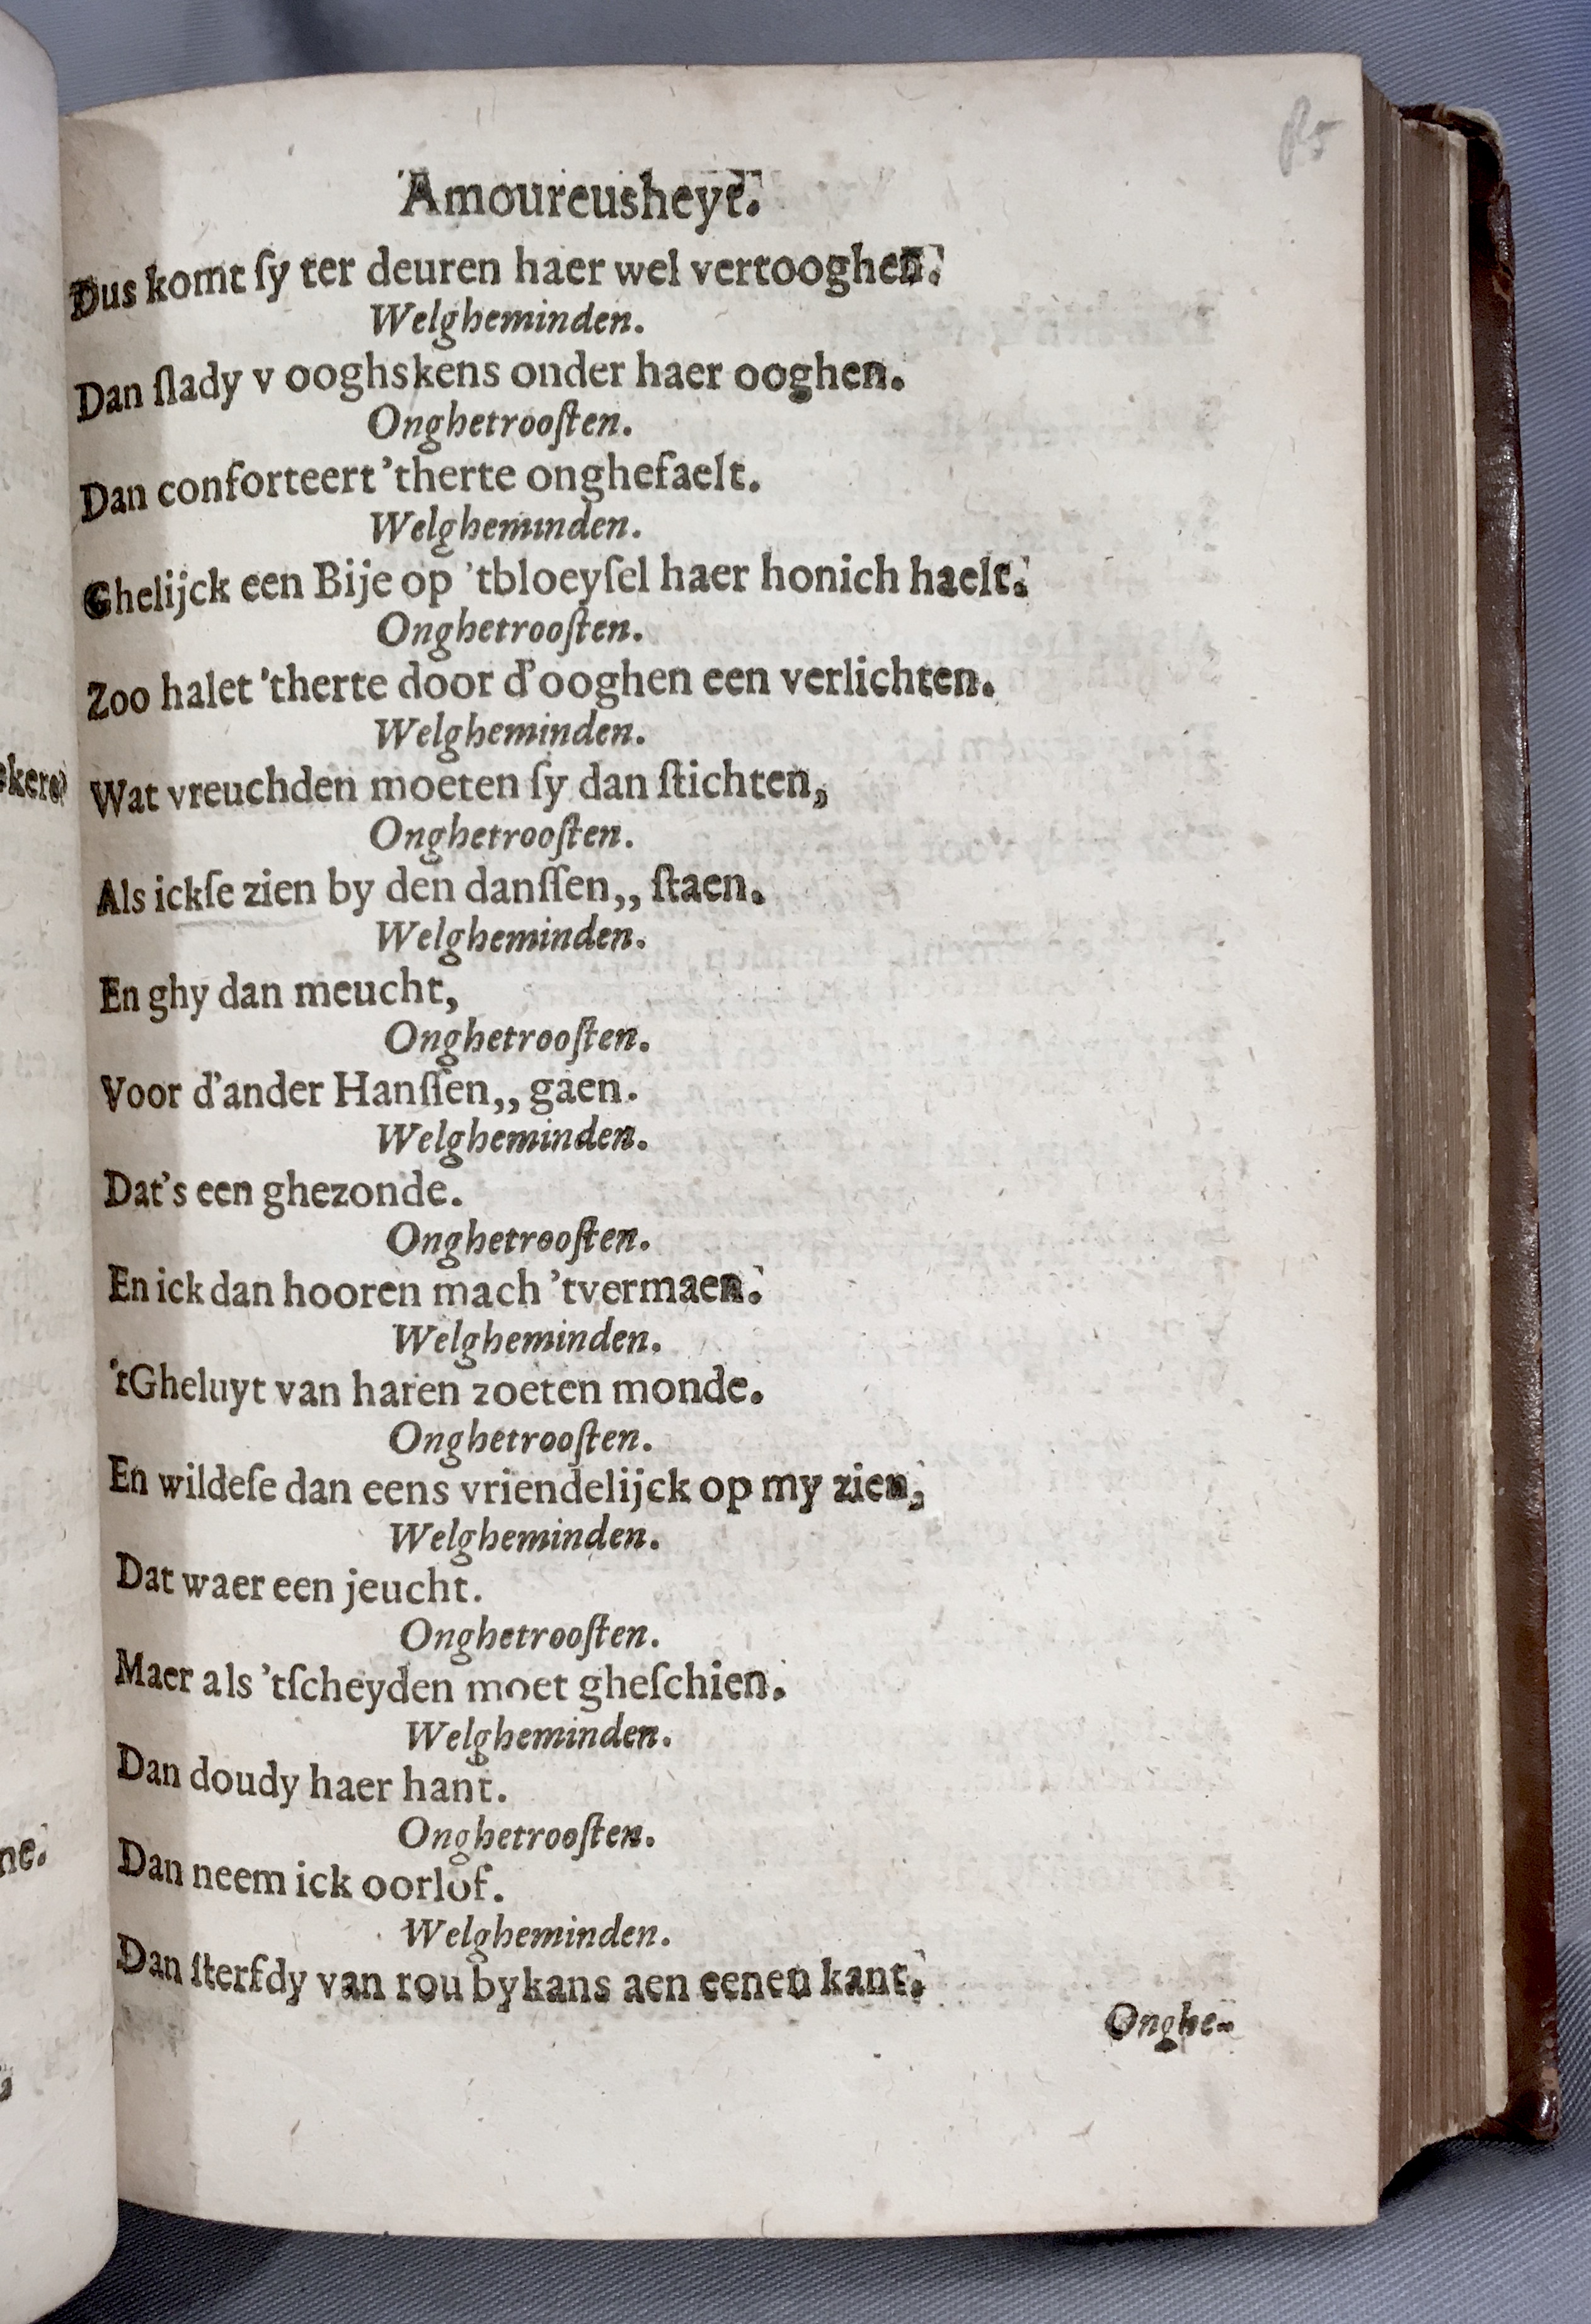 85
Amoureusheyt.
Dus komt ſy ter deuren haer wel vertooghen.
Welgheminden.
Dan ſlady v ooghskens onder haer ooghen.
Onghetrooſten.
Dan conforteert 'therte onghefaelt.
Welgheminden.
Ghelijck een Bije op 'tbloeyſel haer honich haelt.
Onghetrooſten.
Zoo halet 'therte door d'ooghen een verlichten.
Welgheminden.
Wat vreuchden moeten ſy dan ſtichten,
Onghetrooſten.
Als ickſe zien by den danſſen,, ſtaen.
Welgheminden.
En ghy dan meucht,
Onghetrooſten.
Voor d'ander Hanſſen,, gaen.
Welgheminden.
Dat's een ghezonde.
Onghetrooſten.
En ick dan hooren mach 'tvermaen.
Welgheminden.
'tGheluyt van haren zoeten monde.
Onghetrooſten.
En wildeſe dan eens vriendelijck op my zien,
Welgheminden.
Dat waer een jeucht.
Onghetrooſten.
Maer als 'tſcheyden moet gheſchien.
Welgheminden.
Dan doudy haer hant.
Onghetrooſten.
Dan neem ick oorlof.
Welgheminden.
Dan ſterfdy van rou bykans aen eenen kant.
Onghe-